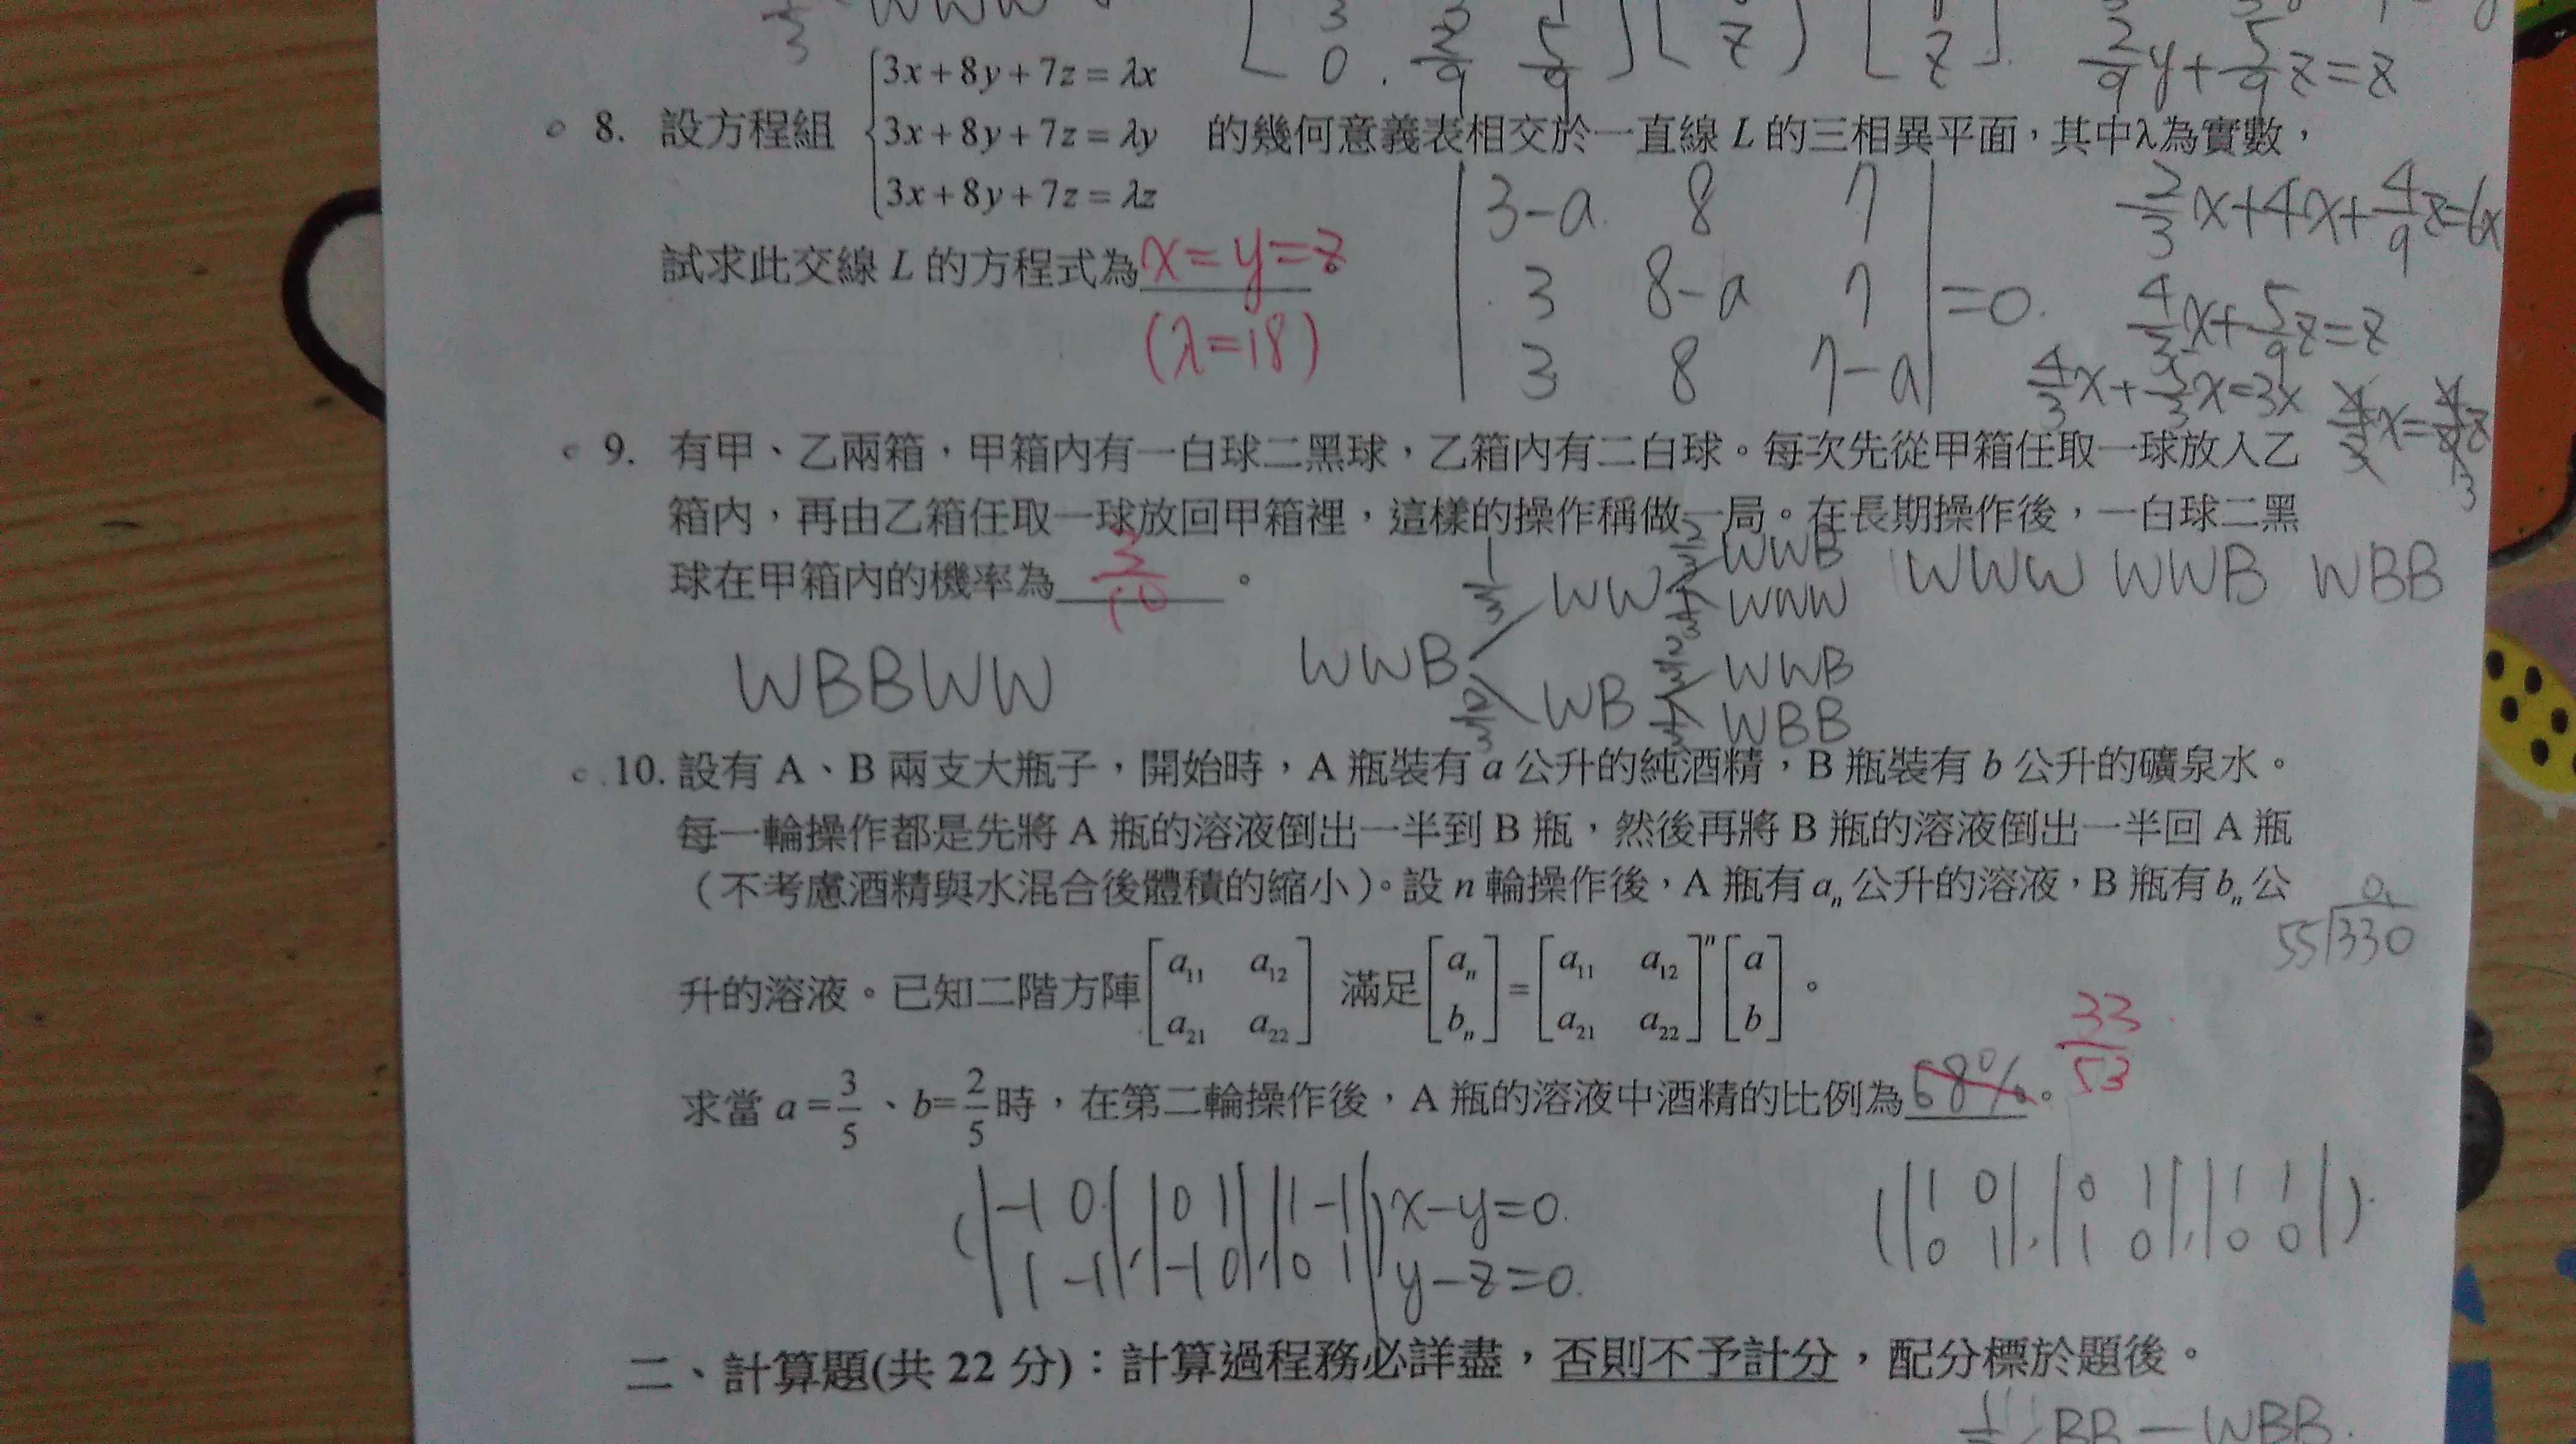 1/3 WWW
3
0 . 2/9 5/9 z z 2/9y+5/9z=z
3x+8y+7z=λx
8. 設方程組 3x+8y+7z=λy 的幾何意義表相交於一直線 L 的三相異平面，其中λ為實數，
3x+8y+7z=λz
3-a 8 7
3 8-a 7 =0.
3 8 7-a
2/3x+4x+4/9z=6x
4/3x+5/9z=z
4/3x+5/3x=3x
試求此交線 L 的方程式為x=y=z
(λ=18)
9. 有甲、乙兩箱，甲箱內有一白球二黑球，乙箱內有二白球。每次先從甲箱任取一球放入乙
箱內，再由乙箱任取一球放回甲箱裡，這樣的操作稱做一局。在長期操作後，一白球二黑
球在甲箱內的機率為 3/10 。
1/3 WW 2/3 WWB
1/3 WWW
WWW WWB WBB
WBBWW
WWB
2/3 WB 2/3 WWB
1/3 WBB
10. 設有 A、B 兩支大瓶子，開始時，A 瓶裝有 a 公升的純酒精，B 瓶裝有 b 公升的礦泉水。
每一輪操作都是先將 A 瓶的溶液倒出一半到 B 瓶，然後再將 B 瓶的溶液倒出一半回 A 瓶
（不考慮酒精與水混合後體積的縮小）。設 n 輪操作後，A 瓶有 aₙ 公升的溶液，B 瓶有 bₙ 公
升的溶液。已知二階方陣[a₁₁ a₁₂; a₂₁ a₂₂] 滿足[aₙ; bₙ]=[a₁₁ a₁₂; a₂₁ a₂₂]ⁿ[a; b]。
0.
55)330
求當 a=3/5、b=2/5時，在第二輪操作後，A 瓶的溶液中酒精的比例為68%。 33/53
(|-1 0; 1 -1|,|0 1; -1 0|,|1 -1; 0 1|) x-y=0.
y-z=0.
(|1 0; 0 1|,|0 1; 1 0|,|1 1; 0 0|).
二、計算題(共 22 分)：計算過程務必詳盡，否則不予計分，配分標於題後。
BB - WBB.